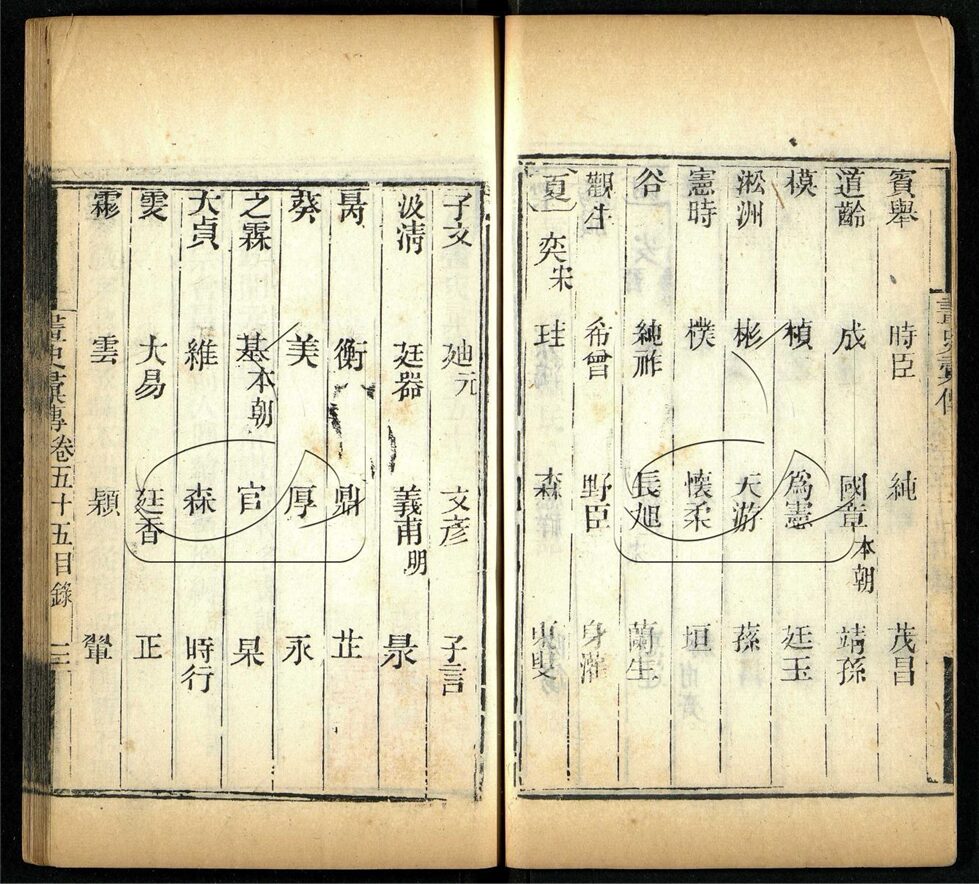 賓舉 時臣 純 茂昌
道齡 成 國章本朝 靖孫
模 楨 爲憲 廷玉
淞洲 彬 天游 蓀
憲時 樸 懷柔 垣
谷 純祚 長旭 蘭生
觀生 希曾 野臣 身濰
夏 奕宋 珪 森 東叟
子文 廸元 文彥 子言
汲清 廷器 義甫明 景
昺 衡 鼎 芷
葵 美 厚 永
之霖 基本朝 官 杲
大貞 維 森 時行
雯 大易 廷香 正
霦 雲 穎 翬
畫史彙傳卷五十五目錄